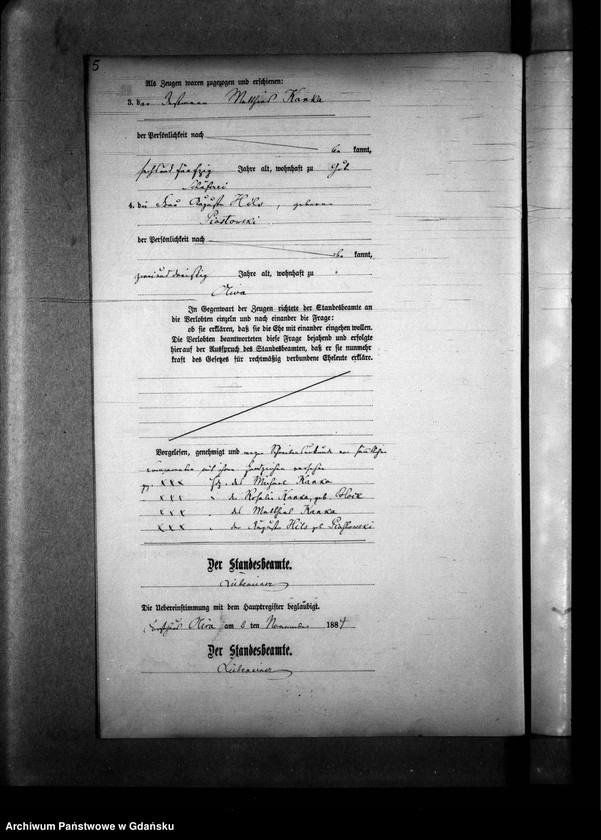 5
Als Zeugen waren zugezogen und erschienen:
3. der Matthias Kanka
der Persönlichkeit nach
be kannt,
sechsundfünfzig Jahre alt, wohnhaft zu Gut
Schäferei
4. die Frau Auguste Hils, geborene
Piastowski
der Persönlichkeit nach
be kannt,
zweiunddreißig Jahre alt, wohnhaft zu
Oliva
In Gegenwart der Zeugen richtete der Standesbeamte an
die Verlobten einzeln und nach einander die Frage:
ob sie erklären, daß sie die Ehe mit einander eingehen wollen.
Die Verlobten beantworteten diese Frage bejahend und erfolgte
hierauf der Ausspruch des Standesbeamten, daß er sie nunmehr
kraft des Gesetzes für rechtmäßig verbundene Eheleute erkläre.
Vorgelesen, genehmigt und wegen Schreibensunkunde von sämmtlichen
mit ihren Handzeichen versehen
gz. XXX Hz. des Michael Kanka
XXX " der Rosalie Kanka, geb. Block
XXX " des Matthias Kanka
XXX " der Auguste Hils geb Piastowski
Der Standesbeamte.
Die Uebereinstimmung mit dem Hauptregister beglaubigt.
Oliva am 8 ten November 1884
Der Standesbeamte.
Archiwum Państwowe w Gdańsku